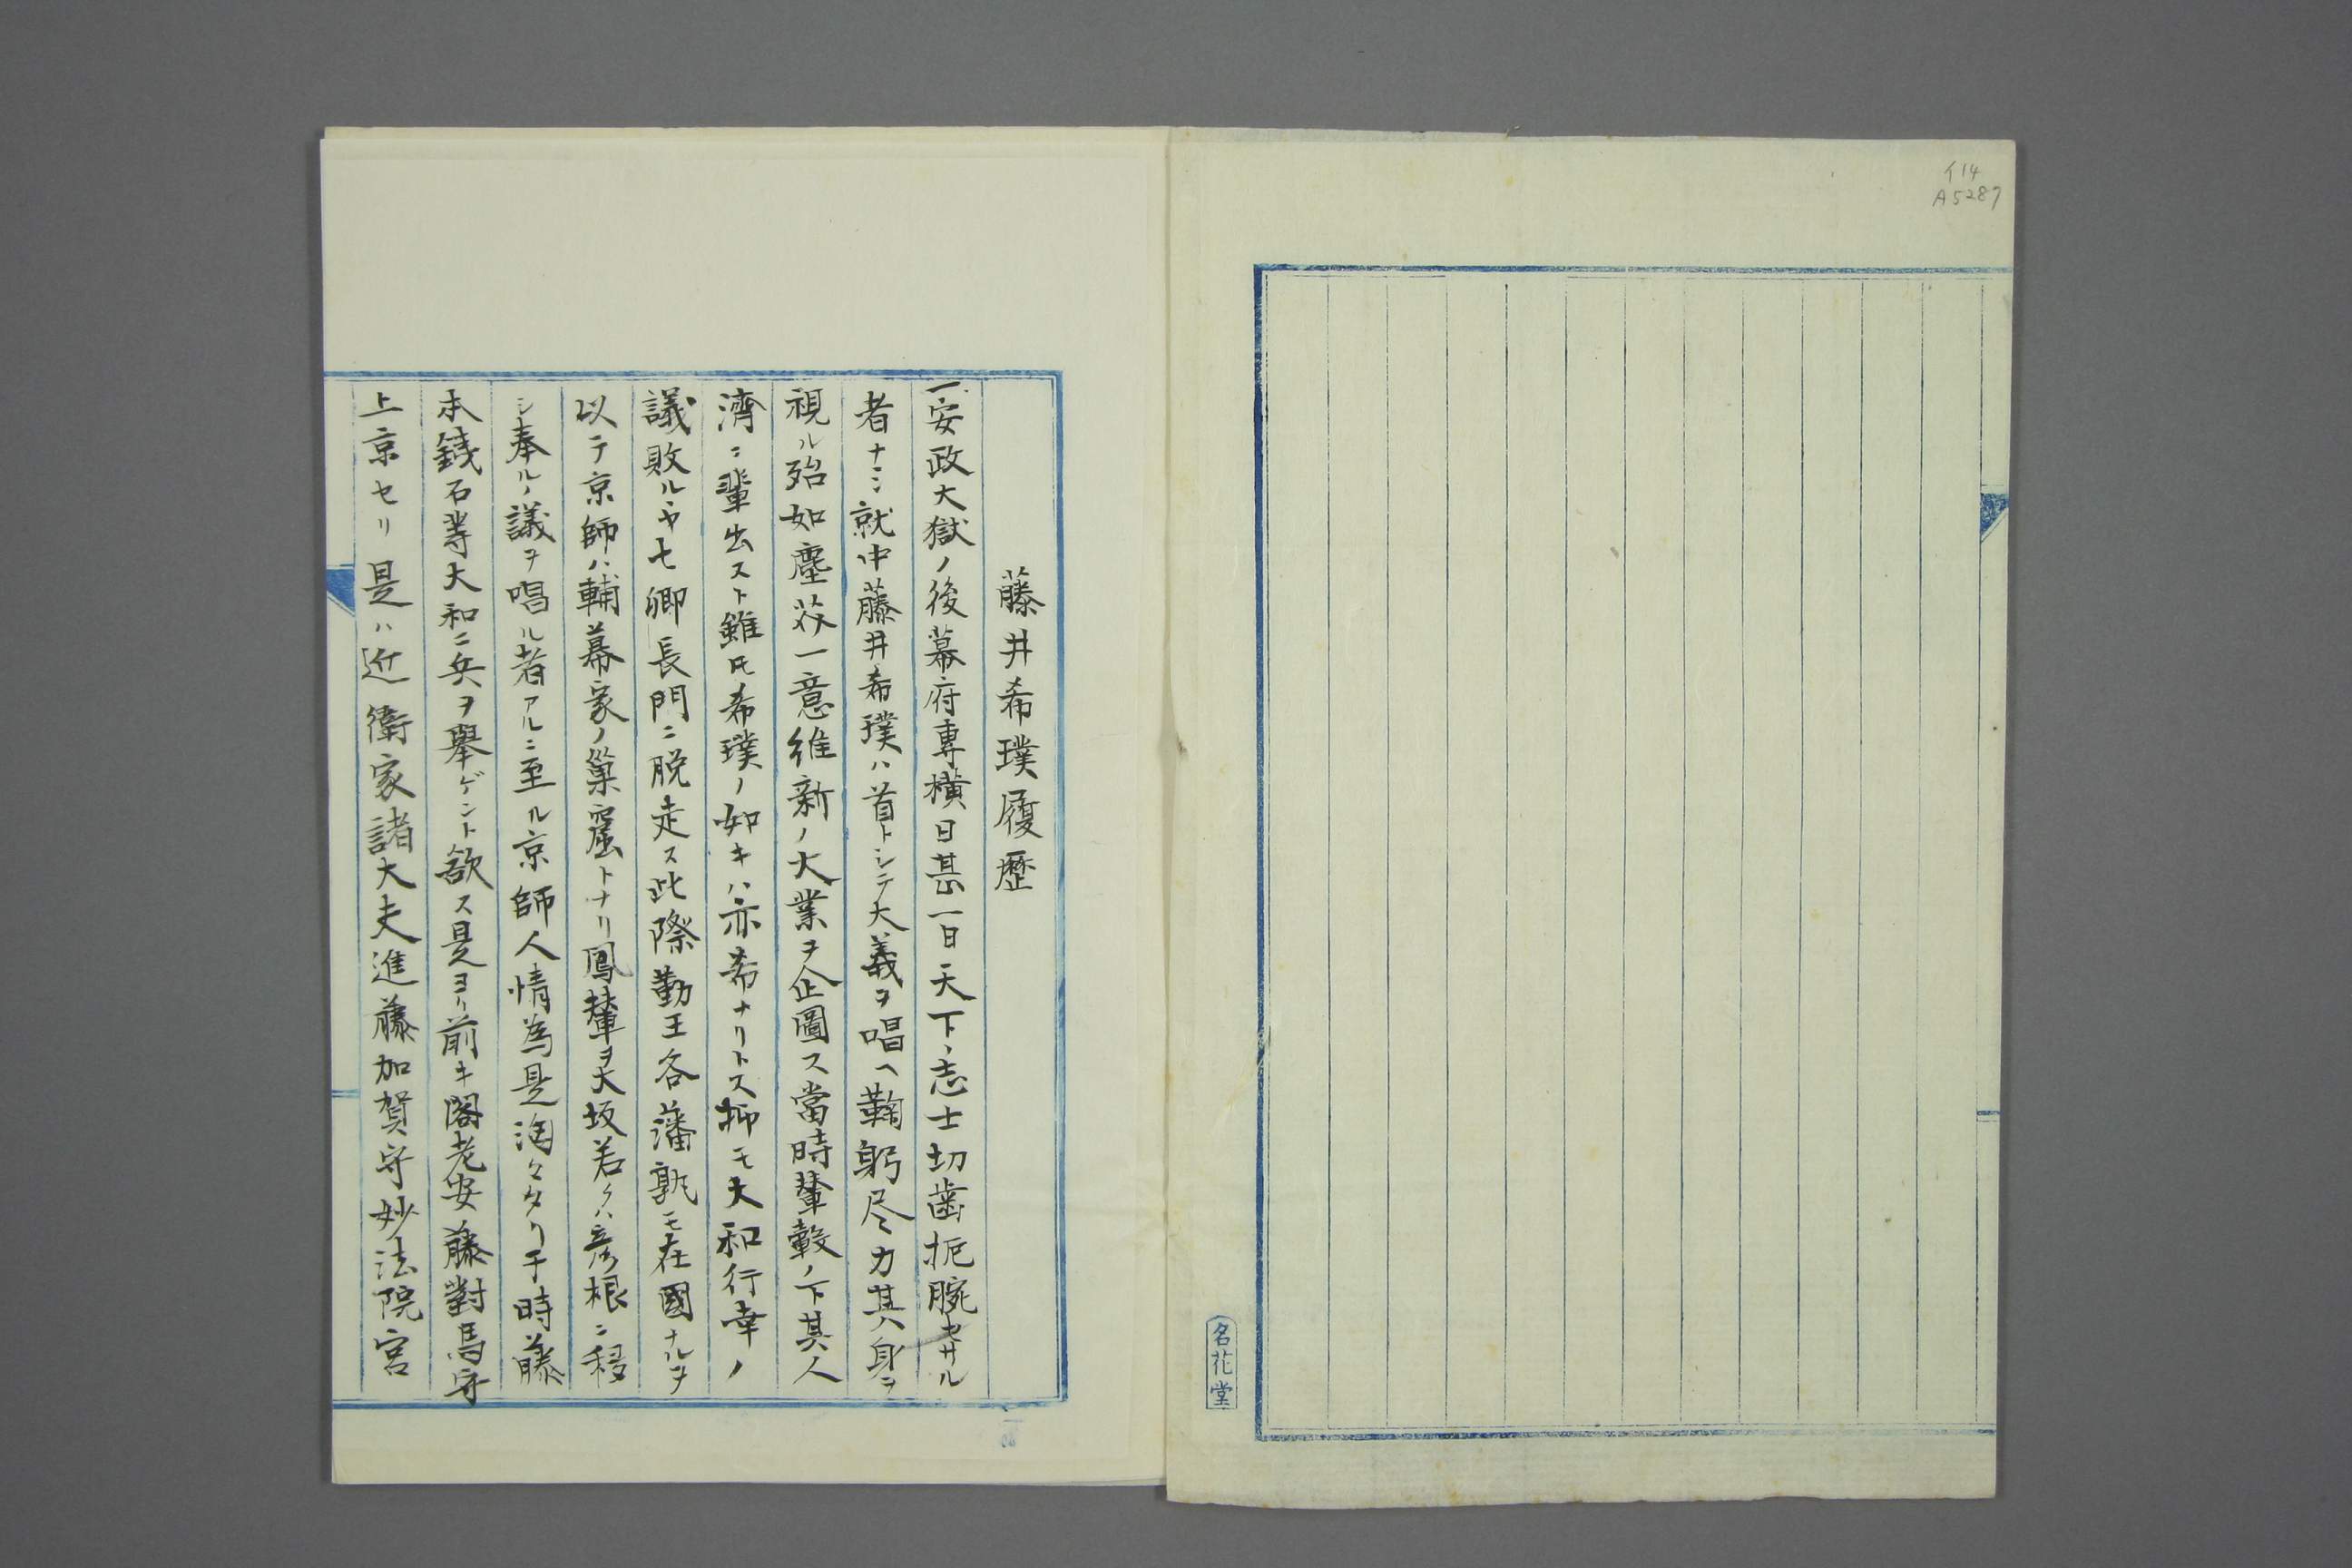 イ14
A5287
名花堂
藤井希璞履歴
一安政大獄ノ後幕府専横日甚一日天下ノ志士切歯扼腕セサル
者ナシ就中藤井希璞ハ首トシテ大義ヲ唱ヘ鞠躬尽力其身ヲ
視ル殆如塵芥一意維新ノ大業ヲ企圖ス當時輦轂ノ下其人
濟ニ輩出スト雖𪜈希璞ノ如キハ亦希ナリトス抑モ大和行幸ノ
議敗ルヤ七卿長門ニ脱走ス此際勤王各藩孰モ在國ナルヲ
以テ京師ハ輔幕家ノ巣窟トナリ鳳輦ヲ大坂若クハ彦根ニ移
シ奉ルノ議ヲ唱ル者アルニ至ル京師人情為是洶々タリ于時藤
本銕石等大和ニ兵ヲ舉ゲント欲ス是ヨリ前キ閣老安藤對馬守
上京セリ是ハ近衛家諸大夫進藤加賀守妙法院宮